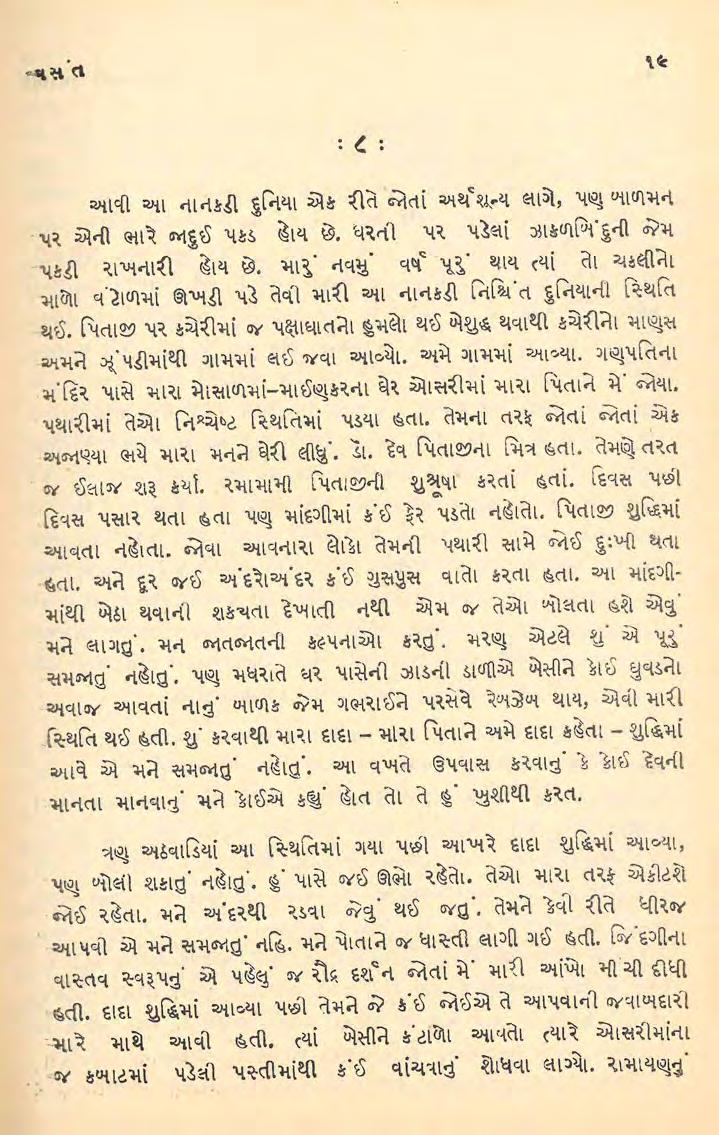 વસંત
૧૯
: ૮ :
આવી આ નાનકડી દુનિયા એક રીતે જોતાં અર્થશૂન્ય લાગે, પણ બાળમન
પર એની ભારે જાદુઈ પકડ હોય છે. ધરતી પર પડેલાં ઝાકળબિંદુની જેમ
પકડી રાખનારી હોય છે. મારું નવમું વર્ષ પૂરું થાય ત્યાં તો ચકલીનો
માળો વંટોળમાં ઊખડી પડે તેવી મારી આ નાનકડી નિશ્ચિંત દુનિયાની સ્થિતિ
થઈ. પિતાજી પર કચેરીમાં જ પક્ષાઘાતનો હુમલો થઈ બેશુદ્ધ થવાથી કચેરીનો માણસ
અમને ઝૂંપડીમાંથી ગામમાં લઈ જવા આવ્યો. અમે ગામમાં આવ્યા. ગણપતિના
મંદિર પાસે મારા મોસાળમાં–માઈણકરના ઘેર ઓસરીમાં મારા પિતાને મેં જોયા.
પથારીમાં તેઓ નિશ્ચેષ્ટ સ્થિતિમાં પડયા હતા. તેમના તરફ જોતાં જોતાં એક
અજાણ્યા ભયે મારા મનને ઘેરી લીધું. ડૉ. દેવ પિતાજીના મિત્ર હતા. તેમણે તરત
જ ઈલાજ શરૂ કર્યા. રમામામી પિતાજીની શુશ્રૂષા કરતાં હતાં. દિવસ પછી
દિવસ પસાર થતા હતા પણ માંદગીમાં કંઈ ફેર પડતો નહોતો. પિતાજી શુદ્ધિમાં
આવતા નહોતા. જોવા આવનારા લોકો તેમની પથારી સામે જોઈ દુઃખી થતા
હતા. અને દૂર જઈ અંદરોઅંદર કંઈ ગુસપુસ વાતો કરતા હતા. આ માંદગી-
માંથી બેઠા થવાની શકચતા દેખાતી નથી એમ જ તેઓ બોલતા હશે એવું
મને લાગતું. મન જાતજાતની કલ્પનાઓ કરતું. મરણ એટલે શું એ પૂરું
સમજાતું નહોતું. પણ મધરાતે ઘર પાસેની ઝાડની ડાળીએ બેસીને કોઈ ઘુવડનો
અવાજ આવતાં નાનું બાળક જેમ ગભરાઈને પરસેવે રેબઝેબ થાય, એવી મારી
સ્થિતિ થઈ હતી. શું કરવાથી મારા દાદા – મારા પિતાને અમે દાદા કહેતા – શુદ્ધિમાં
આવે એ મને સમજાતું નહોતું. આ વખતે ઉપવાસ કરવાનું કે કોઈ દેવની
માનતા માનવાનું મને કોઈએ કહ્યું હોત તો તે હું ખુશીથી કરત.
ત્રણ અઠવાડિયાં આ સ્થિતિમાં ગયા પછી આખરે દાદા શુદ્ધિમાં આવ્યા,
પણ બોલી શકાતું નહોતું. હું પાસે જઈ ઊભો રહેતો. તેઓ મારા તરફ એકીટશે
જોઈ રહેતા. મને અંદરથી રડવા જેવું થઈ જતું. તેમને કેવી રીતે ધીરજ
આપવી એ મને સમજાતું નહિ. મને પોતાને જ ધાસ્તી લાગી ગઈ હતી. જિંદગીના
વાસ્તવ સ્વરૂપનું એ પહેલું જ રૌદ્ર દર્શન જોતાં મેં મારી આંખો મીંચી દીધી
હતી. દાદા શુદ્ધિમાં આવ્યા પછી તેમને જે કંઈ જોઈએ તે આપવાની જવાબદારી
મારે માથે આવી હતી. ત્યાં બેસીને કંટાળો આવતો ત્યારે ઓસરીમાંના
જ કબાટમાં પડેલી પસ્તીમાંથી કંઈ વાંચવાનું શોધવા લાગ્યો. રામાયણનું